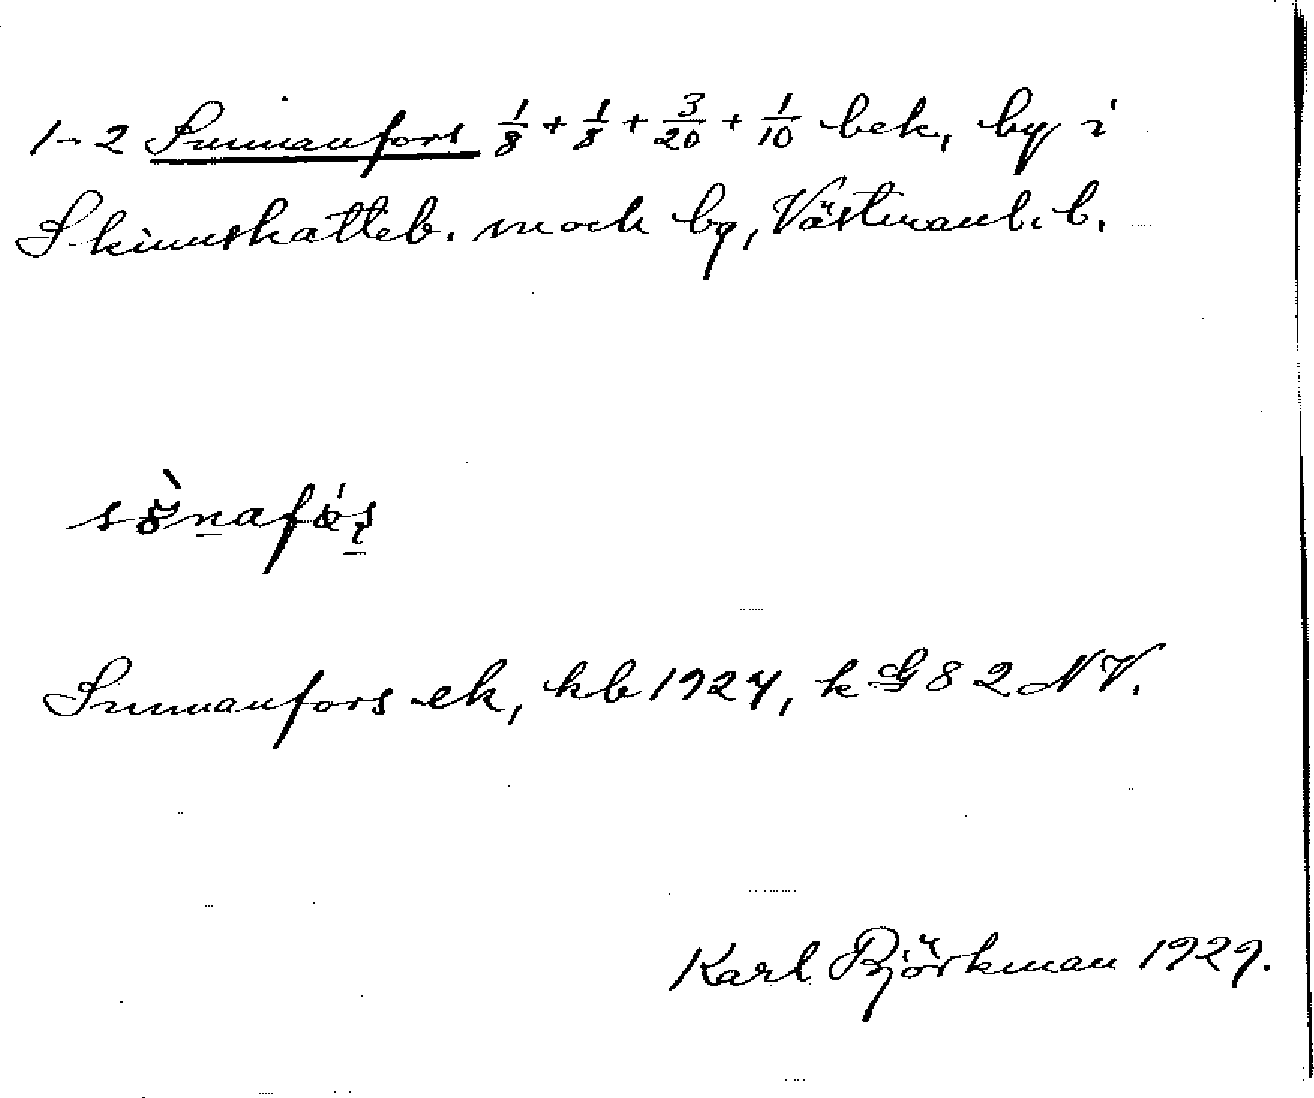 1-2 Sunnanfors 1/8 + 1/8 + 3/20 + 1/10 bek, by i
Skinnskatteb. sn och bg, Västmanl. b.
sònafós
Sunnanfors ek, kb 1924, k G 82 NV.
Karl Björkman 1929.